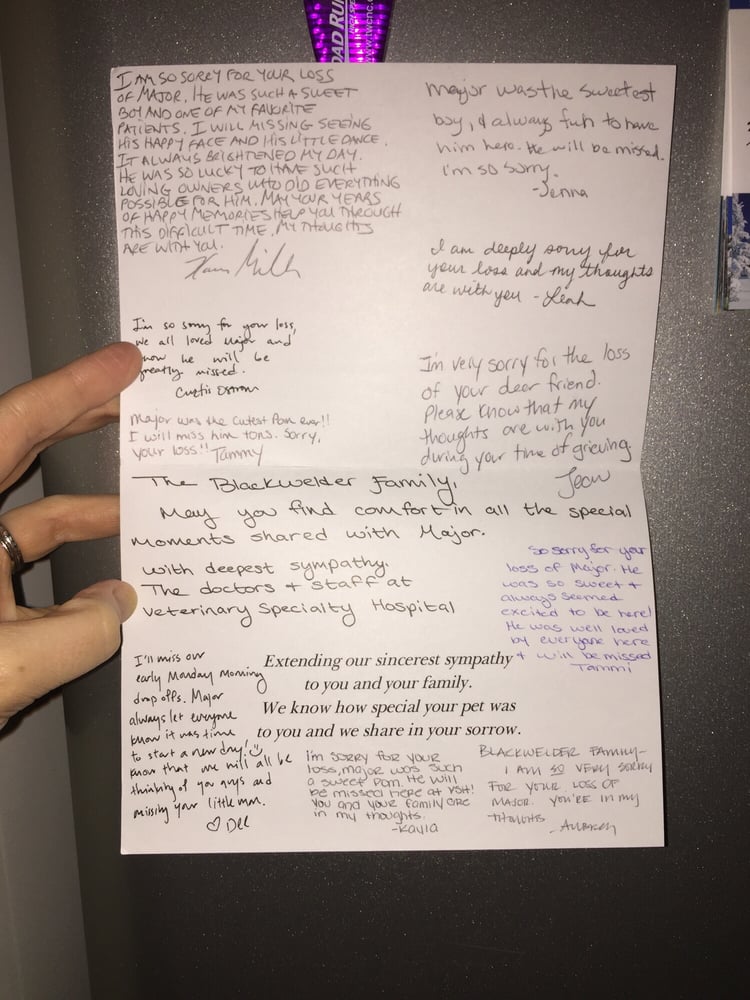 ROAD RUN
HIGH SPE
www.twcnc.c
I AM SO SORRY FOR YOUR LOSS
OF MAJOR. HE WAS SUCH A SWEET
BOY AND ONE OF MY FAVORITE
PATIENTS. I WILL MISSING SEEING
HIS HAPPY FACE AND HIS LITTLE DANCE.
IT ALWAYS BRIGHTENED MY DAY.
HE WAS SO LUCKY TO HAVE SUCH
LOVING OWNERS WHO DID EVERYTHING
POSSIBLE FOR HIM. MAY YOUR YEARS
OF HAPPY MEMORIES HELP YOU THROUGH
THIS DIFFICULT TIME. MY THOUGHTS
ARE WITH YOU.
Major was the sweetest
boy, & always fun to have
him here. He will be missed.
I'm so sorry.
-Jenna
I am deeply sorry for
your loss and my thoughts
are with you - Leah
I'm so sorry for your loss,
we all loved Major and
know he will be
greatly missed.
Curtis
I'm very sorry for the loss
of your dear friend.
Please know that my
thoughts are with you
during your time of grieving.
Jean
Major was the cutest Pom ever!!
I will miss him tons. Sorry,
your loss!! Tammy
The Blackwelder Family,
May you find comfort in all the special
moments shared with Major.
With deepest sympathy.
The doctors & staff at
Veterinary Specialty Hospital
So sorry for your
loss of Major. He
was so sweet &
always seemed
excited to be here!
He was well loved
by everyone here
& will be missed
Tammi
Extending our sincerest sympathy
to you and your family.
We know how special your pet was
to you and we share in your sorrow.
I'll miss our
early Monday morning
drop offs. Major
always let everyone
know it was time
to start a new day!
Know that we will all be
thinking of you guys and
missing your little man.
♡ Dee
I'm sorry for your
loss, Major was such
a sweet Pom. He will
be missed here at VSH!
You and your family are
in my thoughts.
-Kayla
BLACKWELDER FAMILY-
I AM SO VERY SORRY
FOR YOUR LOSS OF
MAJOR. YOU'RE IN MY
THOUGHTS
-AUBREY